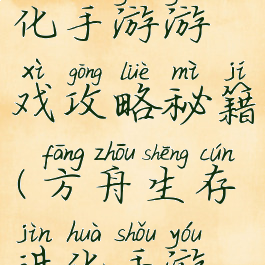 化手游游
xì gōng lüè mì jí
戏攻略秘籍
fāng zhōu shēng cún
(方舟生存
jìn huà shǒu yóu
进化手游